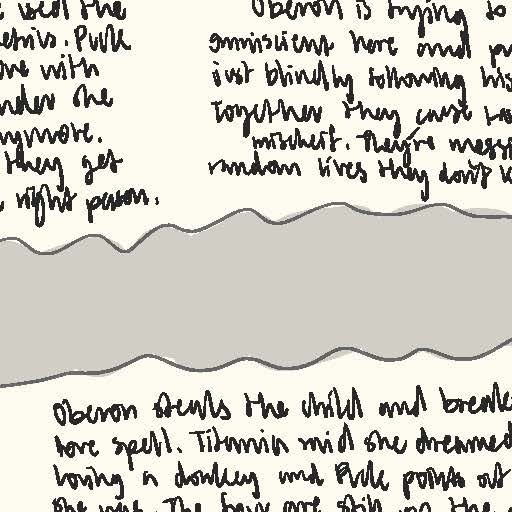 used the
Puck
one with
under she
anymore.
they get
right person.
Oberon is trying to
omniscient here and
just blindly following his
Together they cause
mischeif. They're
random lives they don't
Oberon steals the child and
love spell. Titania said she dreamed
loving a donkey and Puck points out
she was. The four are still in the